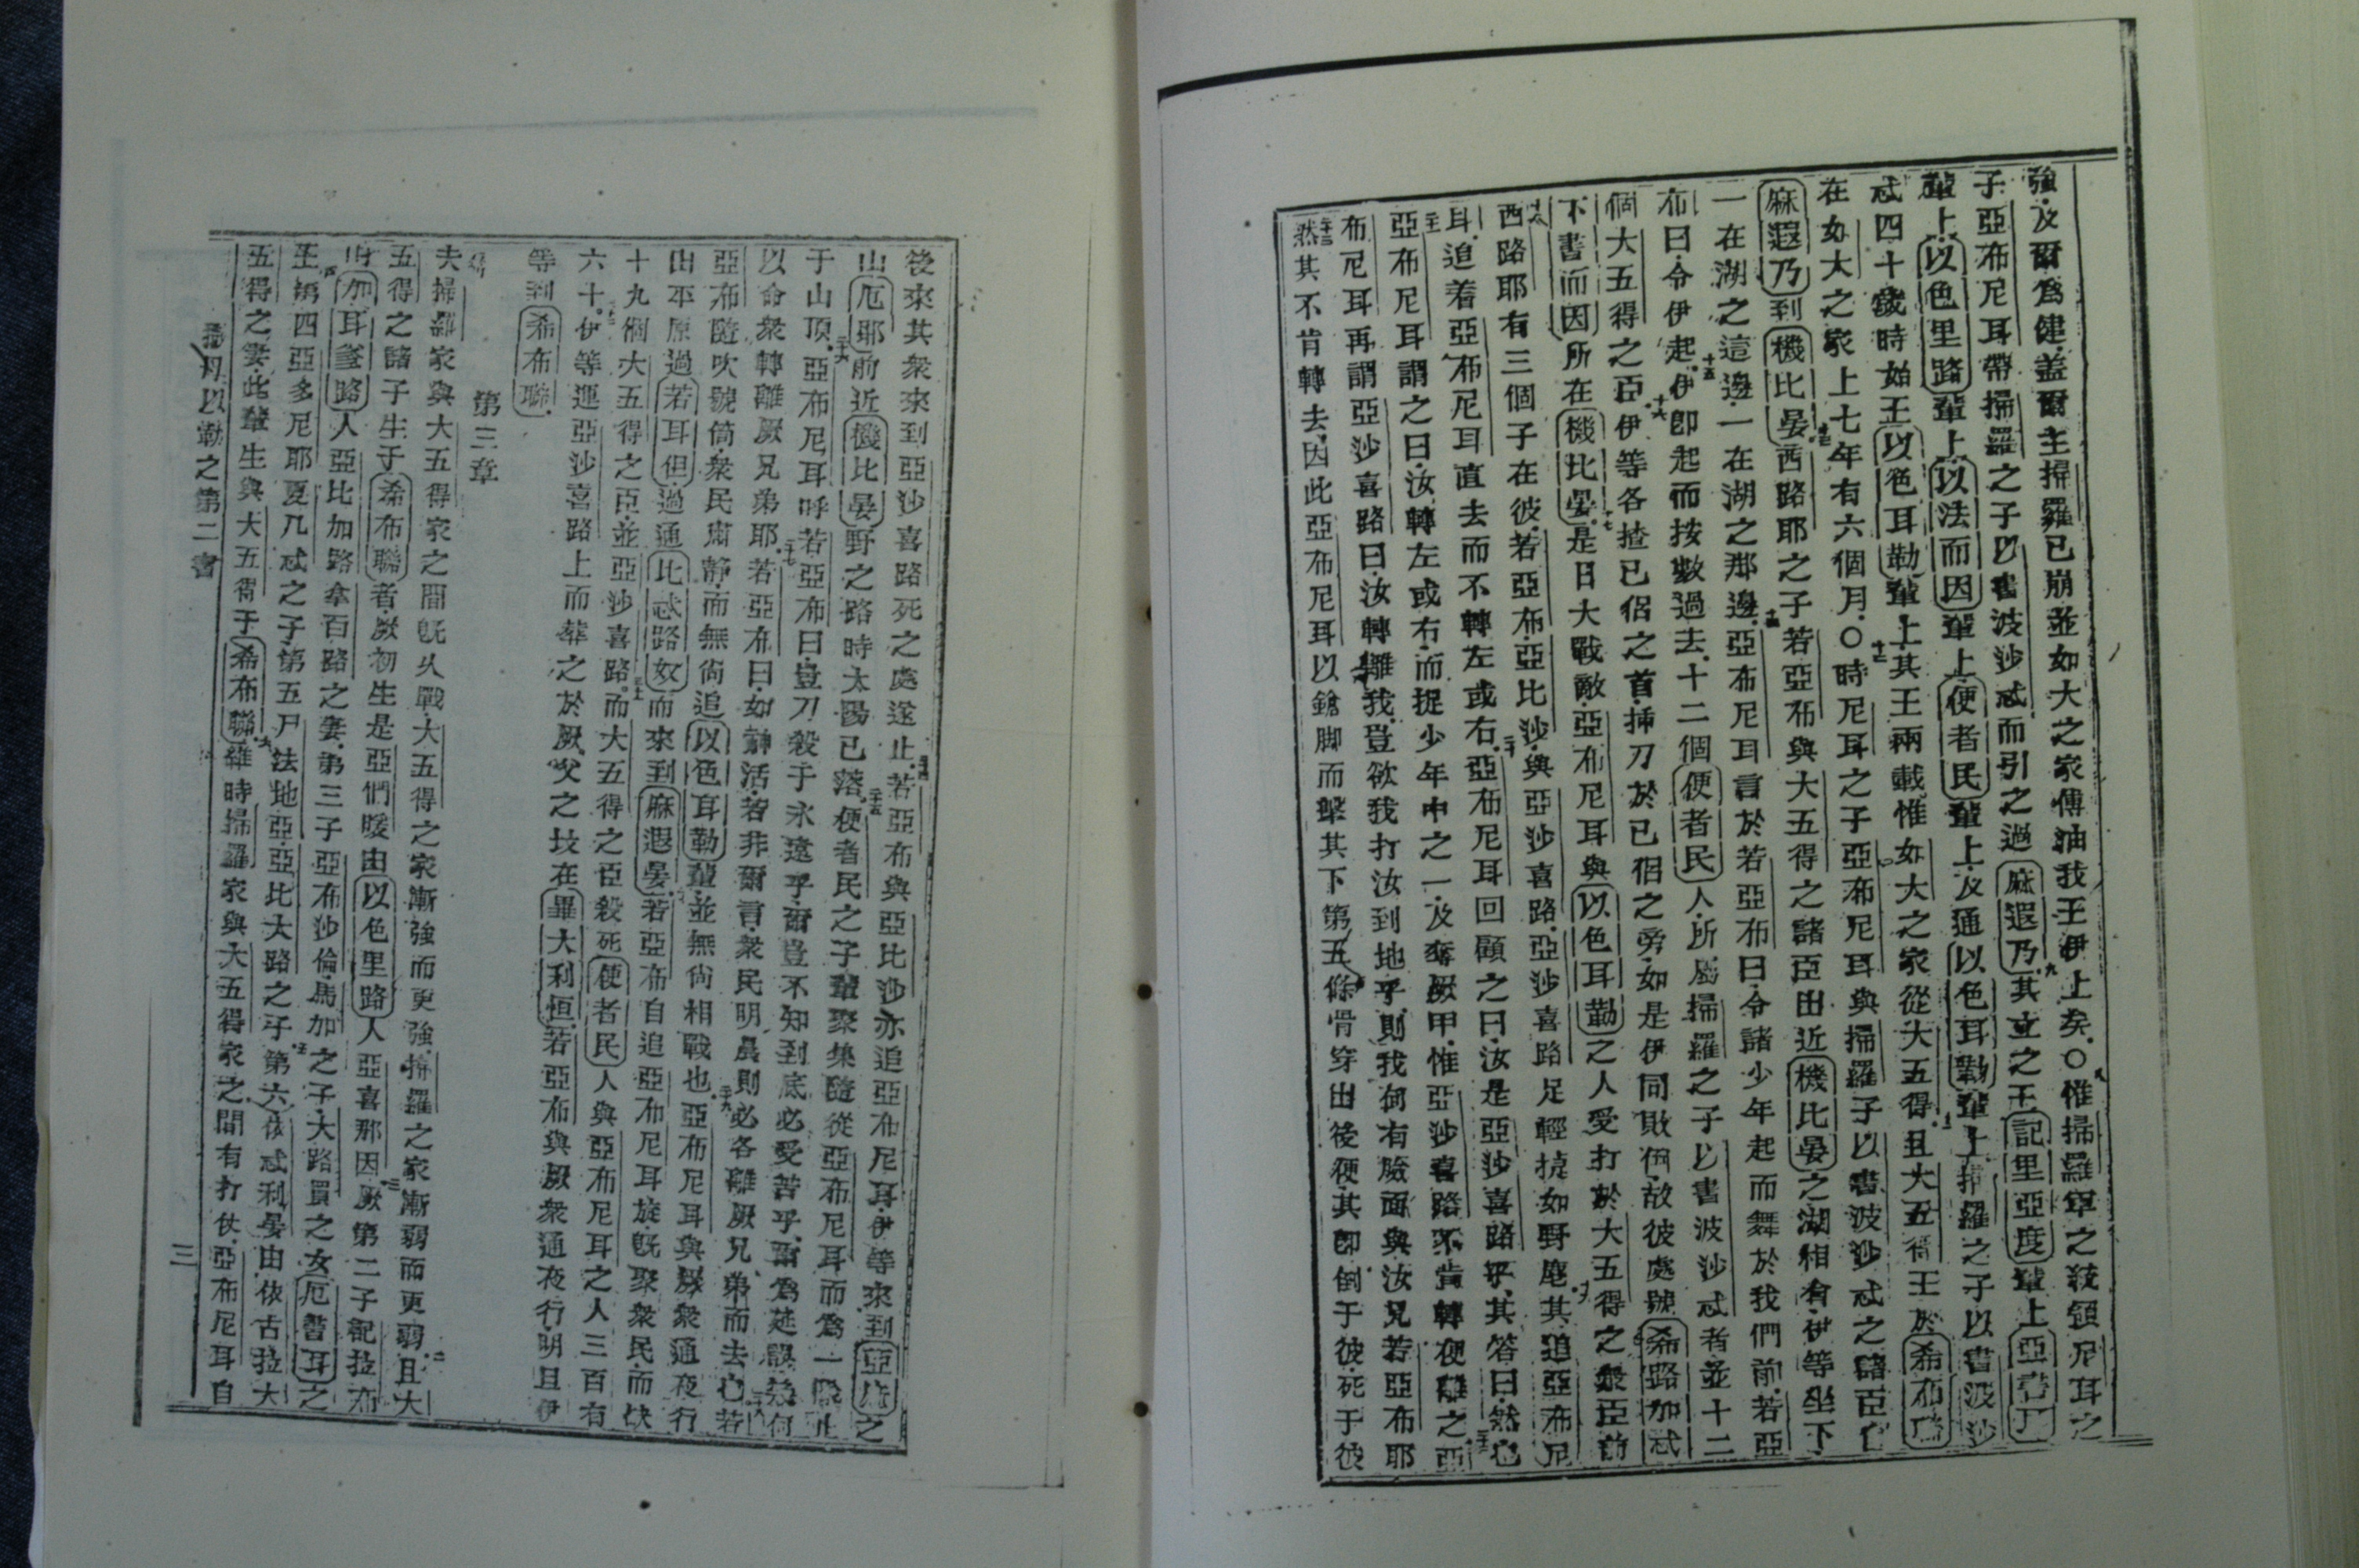 強及爾爲健蓋爾主掃羅已崩並如大之家傅油我王伊上矣〇惟掃羅軍之該領尼耳之
子亞布尼耳帶掃羅之子以書波沙忒而引之過麻遐乃九其立之王記里亞度輩上亞書
輩上以色里路輩上以法而因輩上便者民輩上及通以色耳勒輩上掃羅之子以書波沙
忒四十歲時始王以色耳勒輩上其王兩載惟如大之家從大五得十一且大五得王於希布
在如大之家上七年有六個月〇十二時尼耳之子亞布尼耳與掃羅子以書波沙忒之諸臣
麻遐乃到機比晏十三西路耶之子若亞布與大五得之諸臣出近機比晏之湖相會伊等坐下
一在湖之這邊一在湖之那邊十四亞布尼耳言於若亞布曰令諸少年起而舞於我們前若亞
布曰令伊起十五伊卽起而按數過去十二個便者民人所屬掃羅之子以書波沙忒者並十二
個大五得之臣十六伊等各揸已侶之首揷刀於已侶之旁如是伊同敗倒故彼處號希路加忒
不書而因所在機比晏十七是日大戰敵亞布尼耳與以色耳勒之人受打於大五得之衆臣前
西路耶有三個子在彼若亞布亞比沙與亞沙喜路亞沙喜路足輕捷如野麀其十九追亞布尼
耳追着亞布尼耳直去而不轉左或右二十亞布尼耳回顧之曰汝是亞沙喜路乎其答曰然也
亞布尼耳謂之曰汝轉左或右而捉少年中之一及奪厥甲惟亞沙喜路不肯轉便離之亞
布尼耳再謂亞沙喜路曰汝轉離我豈欲我打汝到地乎則我何有臉面與汝兄若亞布耶
然其不肯轉去因此亞布尼耳以鎗脚而擊其下第五條骨穿出後便其卽倒于彼死于彼
後來其衆來到亞沙喜路死之處遂止若亞布與亞比沙亦追亞布尼耳伊等來到亞麻之
山厄耶前近機比晏野之路時太陽已落便者民之子輩聚集隨從亞布尼耳而爲一隊止
于山頂亞布尼耳呼若亞布曰豈刀殺于永遠乎爾豈不知到底必受苦乎爾爲延誤幾何
以命衆轉離厥兄弟耶若亞布曰如神活若非爾言衆民明晨則必各離厥兄弟而去也若
亞布隨吹號筒衆民肅靜而無尙追以色耳勒輩並無尙相戰也亞布尼耳與厥衆通夜行
出平原過若耳但過通比忒路奴而來到麻遐晏若亞布自追亞布尼耳旋旣聚衆民而快
十九個大五得之臣並亞沙喜路而大五得之臣殺死便者民人與亞布尼耳之人三百有
六十伊等運亞沙喜路上而葬之於厥父之坟在畢大利恒若亞布與厥衆通夜行明旦伊
等到希布聯
第三章
夫掃羅家與大五得家之間旣久戰大五得之家漸強而更強掃羅之家漸弱而更弱二且大
五得之諸子生于希布聯者厥初生是亞們暖由以色里路人亞喜那因三厥第二子記拉布
由加耳釜路人亞比加路拿百路之妻第三子亞布沙倫馬加之子大路買之女厄書耳之
王第四亞多尼耶夏几忒之子第五尸法地亞亞比大路之子五第六依忒利晏由依古拉大
五得之妻此輩生與大五得于希布聯六雖時掃羅家與大五得家之間有打仗亞布尼耳自
撒母以勒之第二書
三